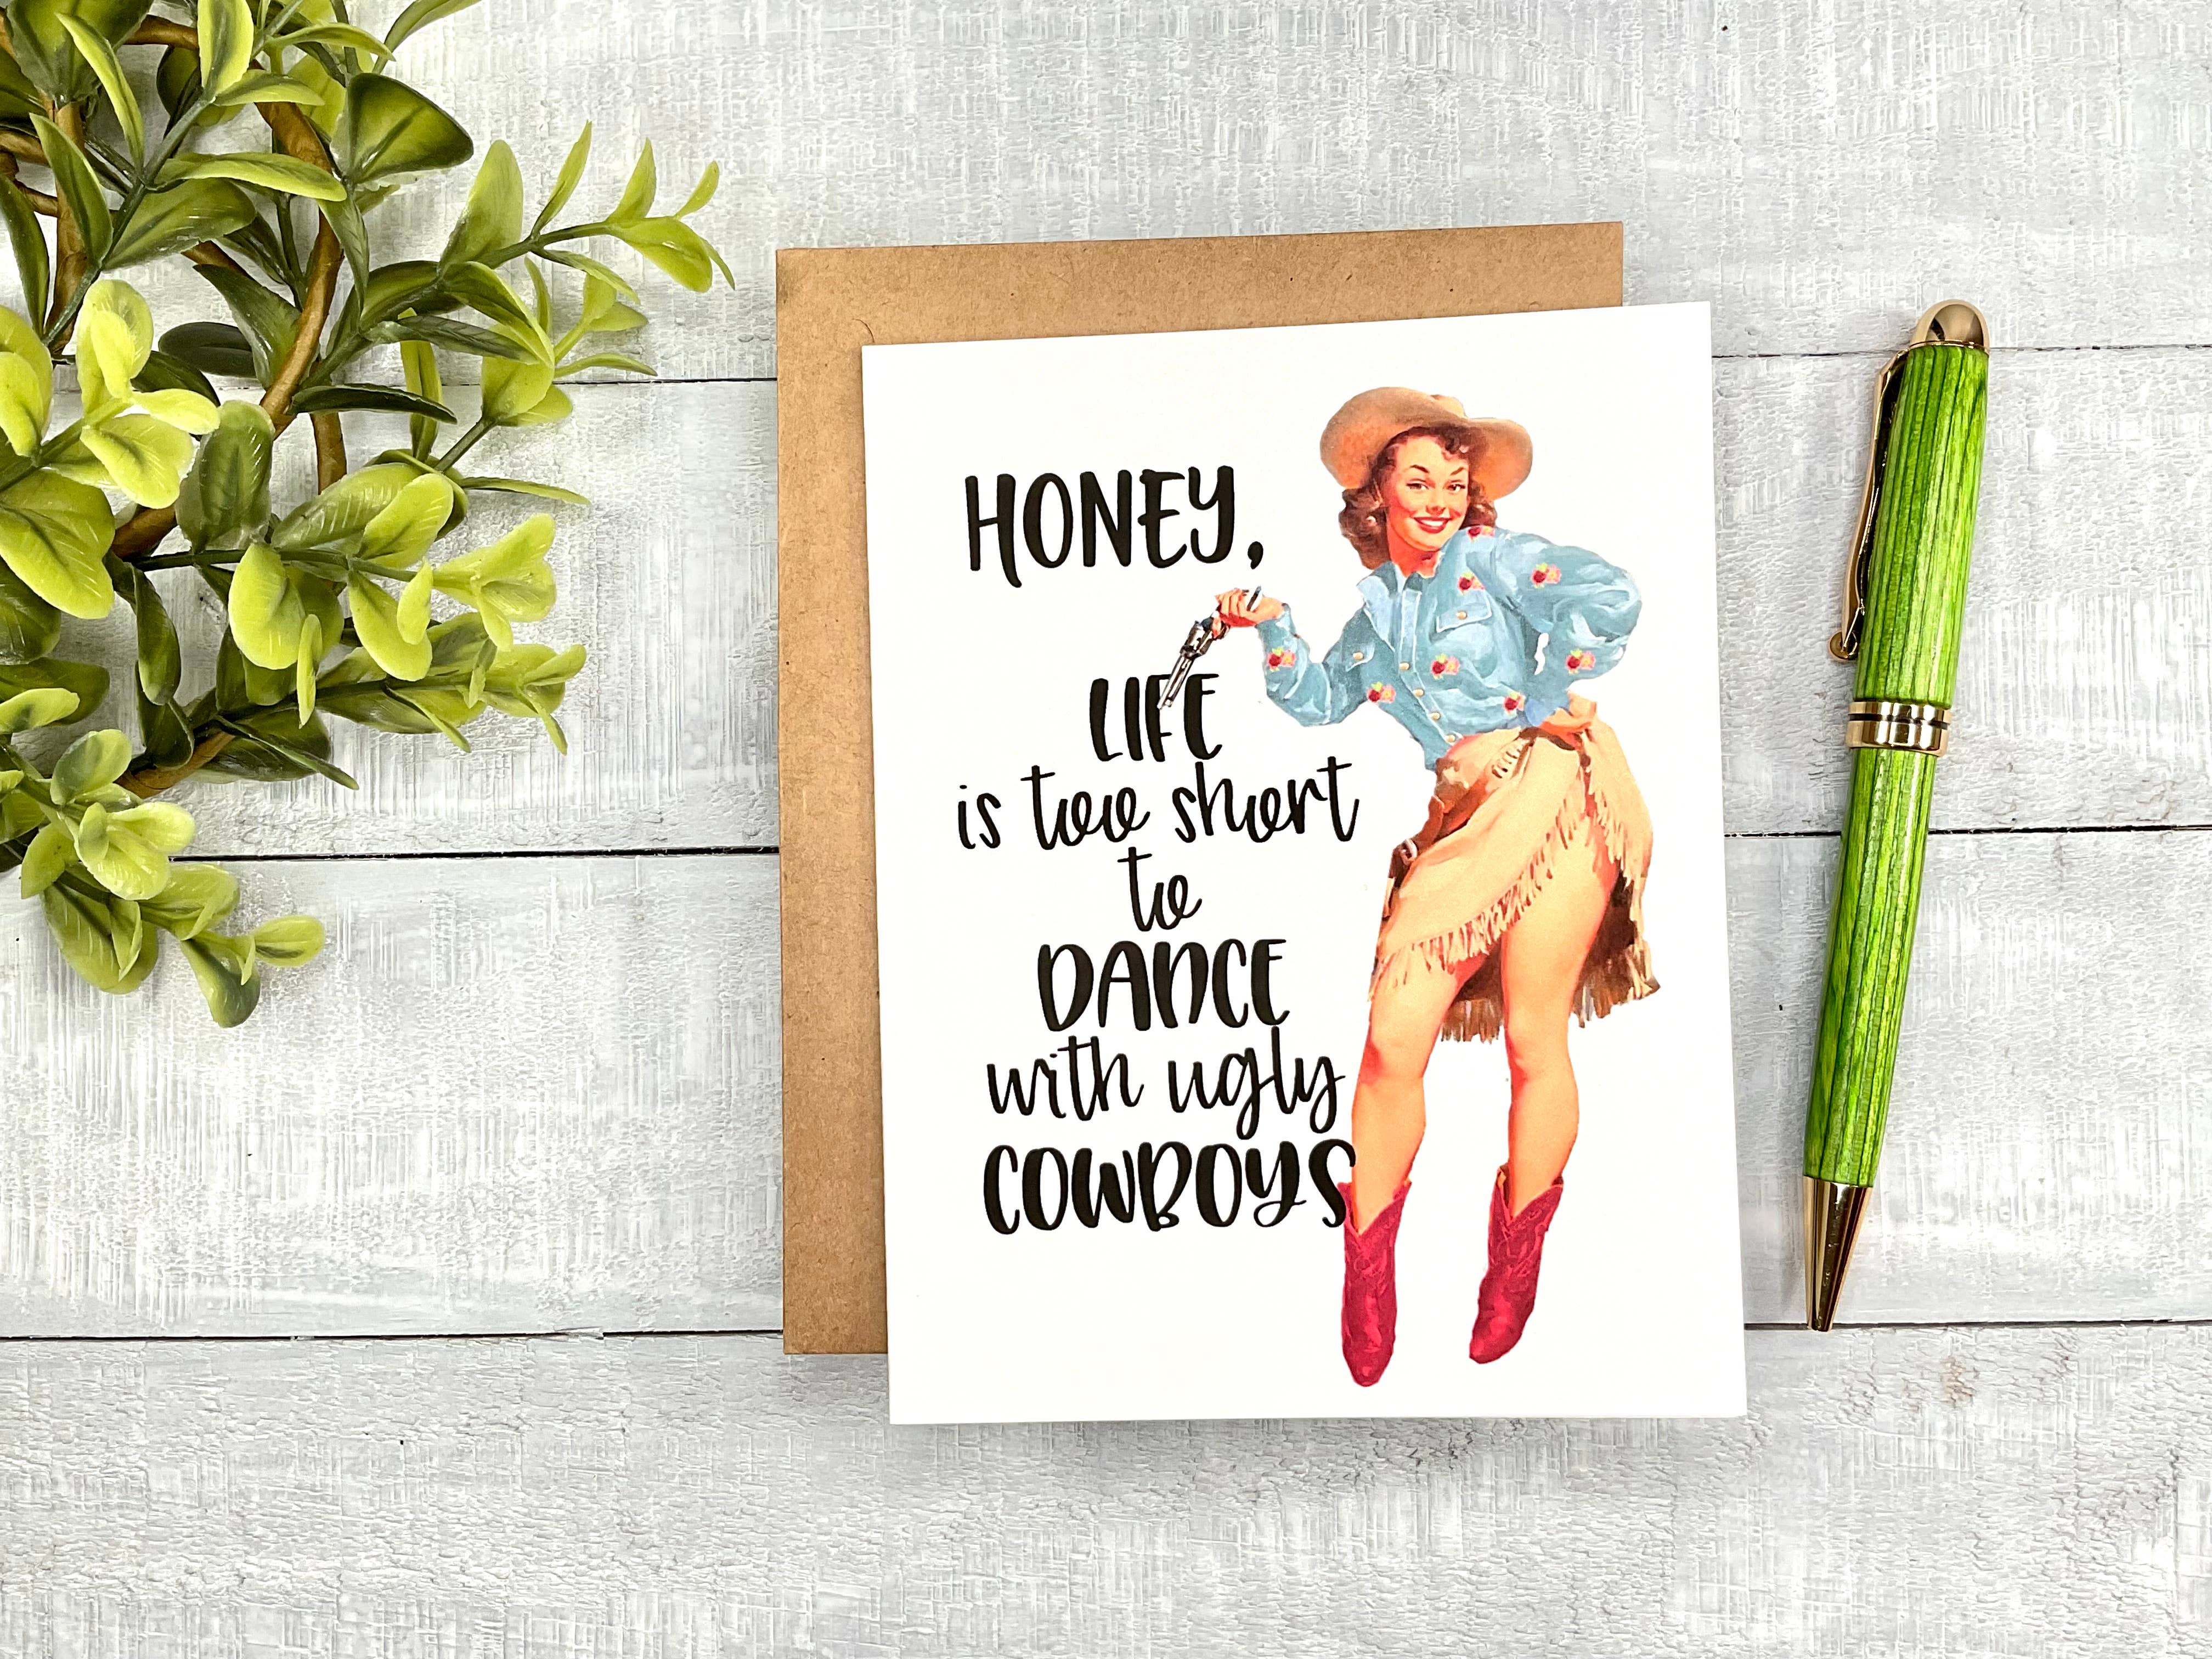 HONEY,
LIFE
is too short
to
DANCE
with ugly
COWBOYS